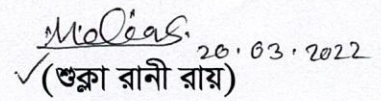 20.03.2022
(শুক্লা রানী রায়)